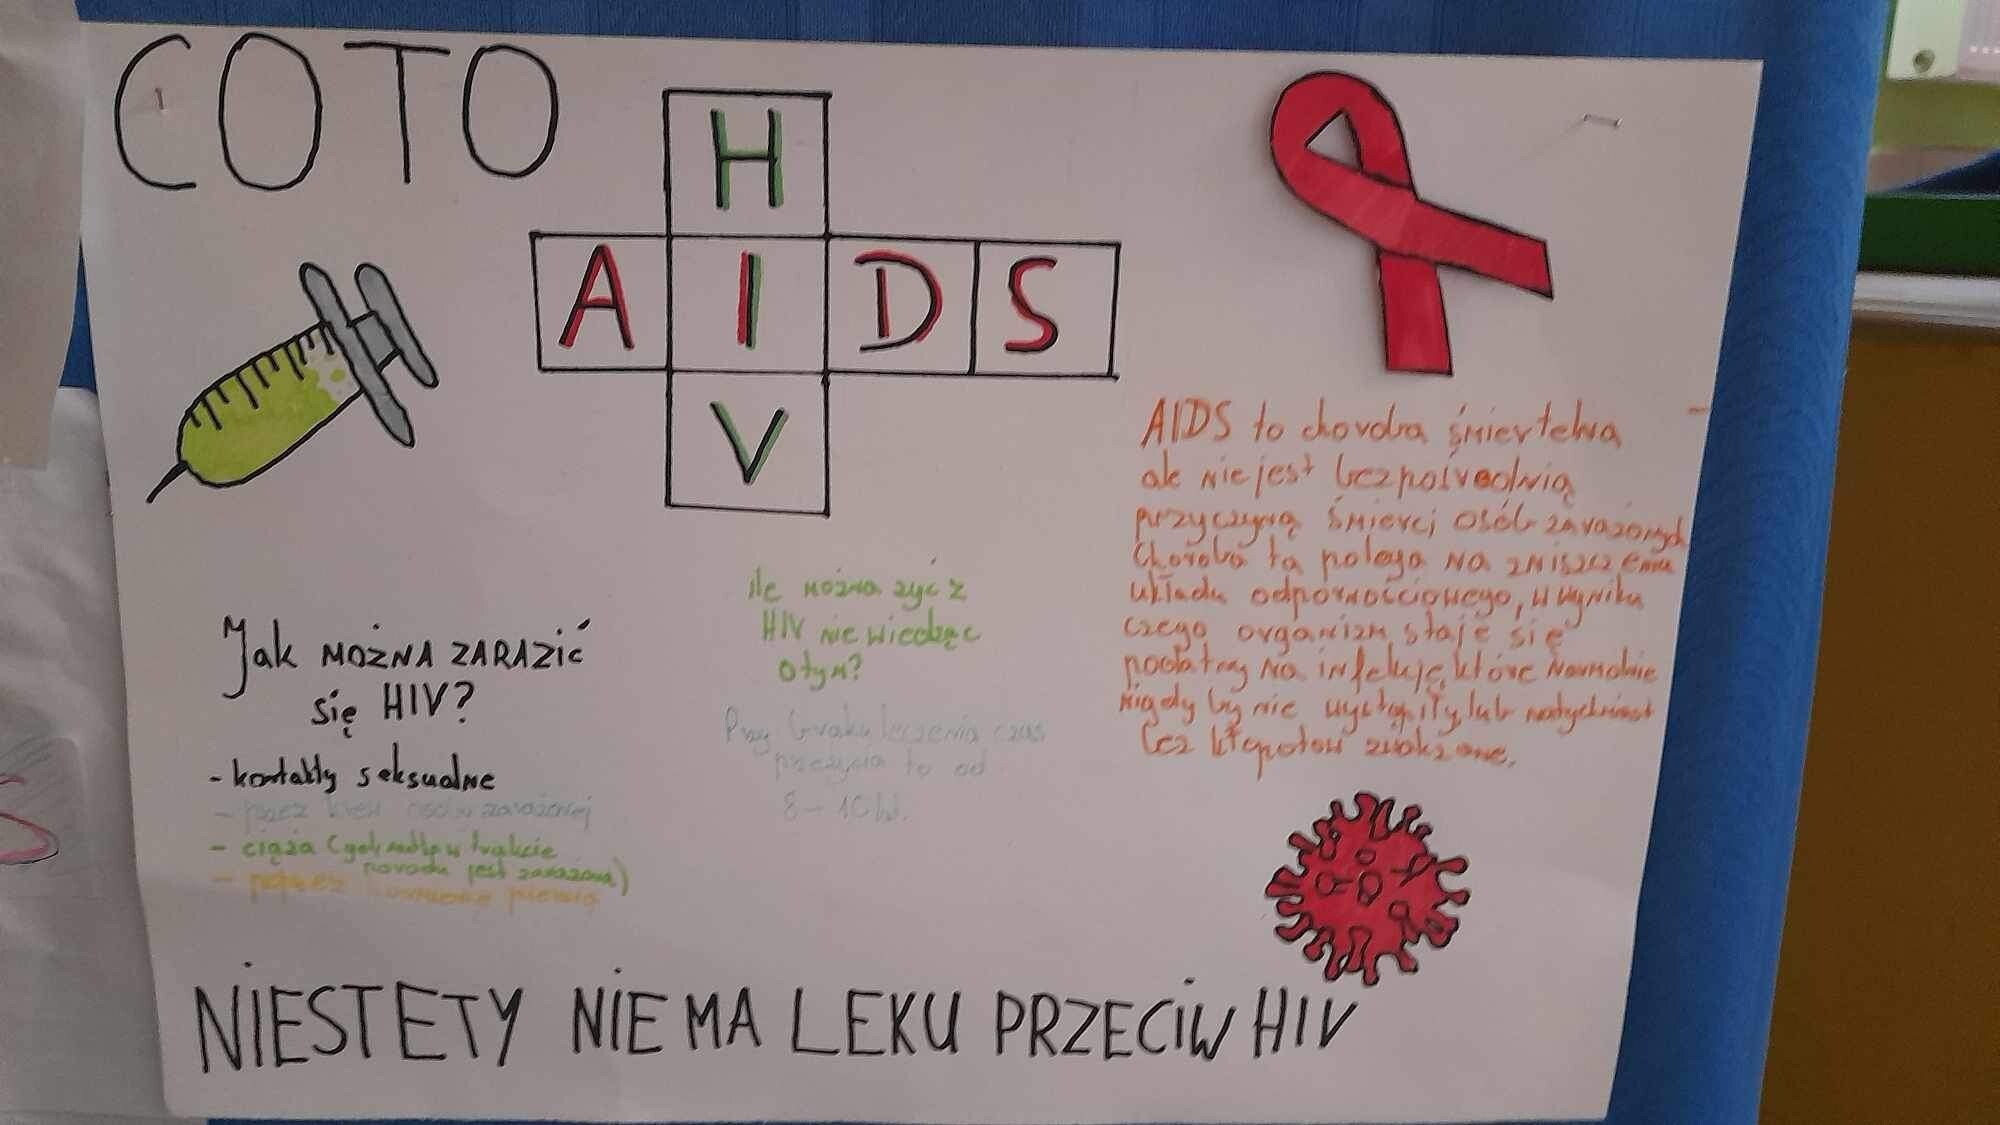 COTO
H
AIDS
V
AIDS to choroba śmiertelna
ale nie jest bezpośrednią
przyczyną śmierci osób zarażonych
Choroba ta polega na zniszczeniu
układu odpornościowego, w wyniku
czego organizm staje się
podatny na infekcje, które normalnie
nigdy by nie wystąpiły, lub natychmiast
bez kłopotów zwalczone.
Jak MOŻNA ZARAZIĆ
się HIV?
- kontakty seksualne
- przez krew osoby zarażonej
- ciąża (gdy matka w trakcie
porodu jest zarażona)
- poprzez karmienie piersią
ile można żyć z
HIV nie wiedząc
otym?
Przy braku leczenia czas
przeżycia to od
8-10 lat.
NIESTETY NIE MA LEKU PRZECIW HIV